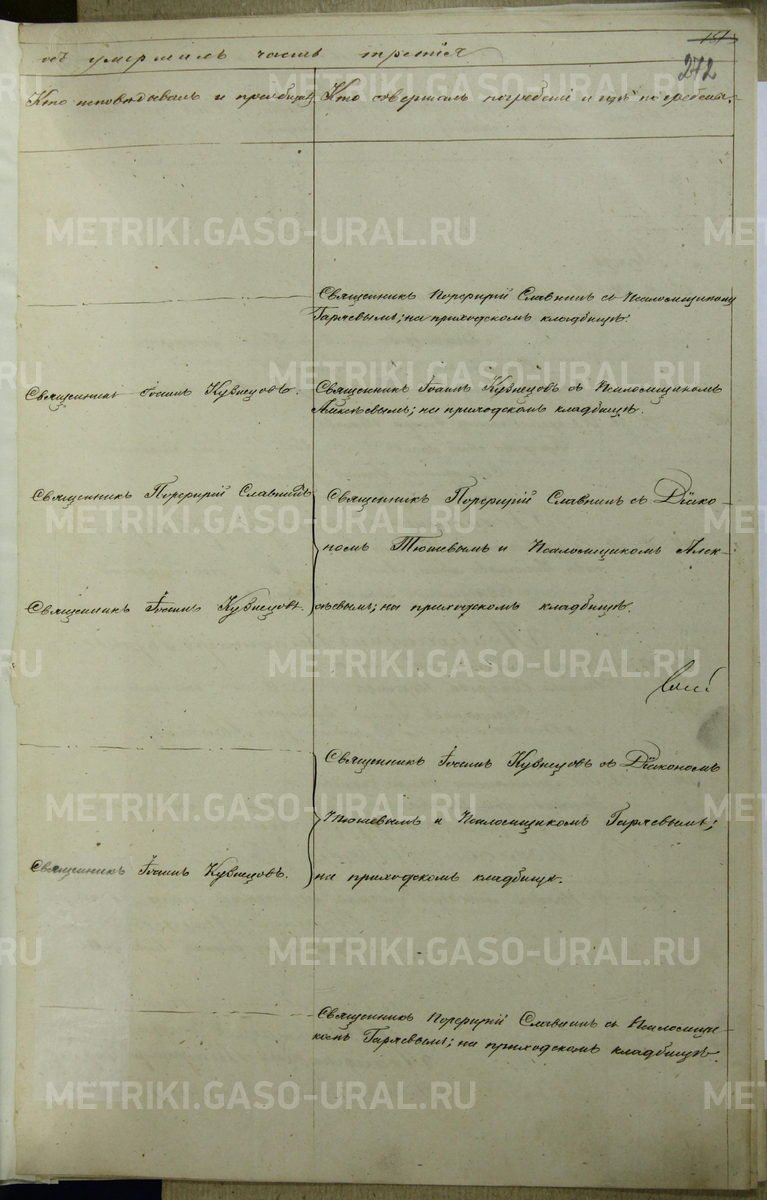 объ умершихъ часть третія
272
Кто исповѣдывалъ и пріобщалъ
Кто совершалъ погребеніе и гдѣ погребены.
Священникъ Порфирій Славнинъ съ Псаломщикомъ
Гаряевымъ; на приходскомъ кладбищѣ.
Священникъ Іоаннъ Кузнецовъ.
Священникъ Іоаннъ Кузнецовъ съ Псаломщикомъ
Алексѣевымъ; на приходскомъ кладбищѣ.
Священникъ Порфирій Славнинъ
Священникъ Іоаннъ Кузнецовъ.
Священникъ Порфирій Славнинъ съ Діако-
номъ Тюшевымъ и Псаломщикомъ Алек-
сѣевымъ; на приходскомъ кладбищѣ.
Священникъ Іоаннъ Кузнецовъ.
Священникъ Іоаннъ Кузнецовъ съ Діакономъ
Тюшевымъ и Псаломщикомъ Гаряевымъ;
на приходскомъ кладбищѣ.
Священникъ Порфирій Славнинъ съ Псаломщи-
комъ Гаряевымъ; на приходскомъ кладбищѣ.
METRIKI.GASO-URAL.RU